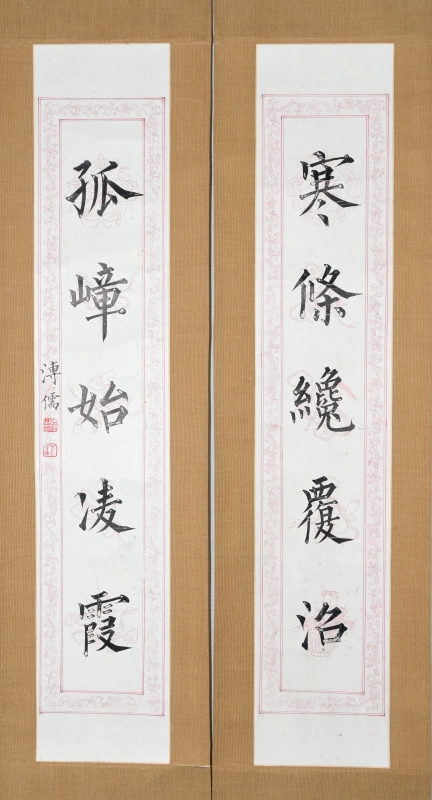 寒條纔覆沼
孤嶂始凌霞
溥儒